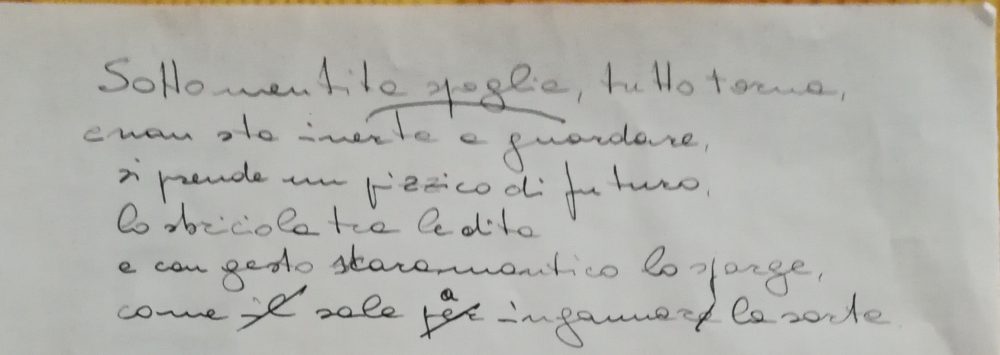 Sotto mentite spoglie, tutto torna,
e non sta inerte a guardare,
si prende un pizzico di futuro,
lo sbriciola tra le dita
e con gesto scaramantico lo sparge,
come sale a ingannar la sorte